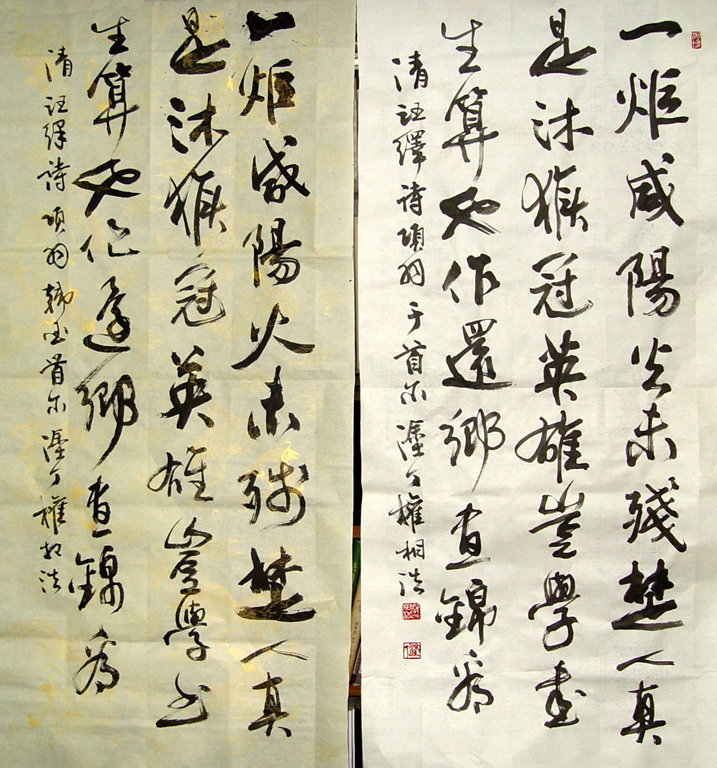 一炬咸陽火未殘楚人真
是沐猴冠英雄豈學書
生算也作還鄉晝錦看
清汪繹詩項羽于首尔塗丁權相浩
一炬咸陽火未殘楚人真
是沐猴冠英雄豈學書
生算也作還鄉晝錦看
清汪繹詩項羽韓國首尔塗丁權相浩